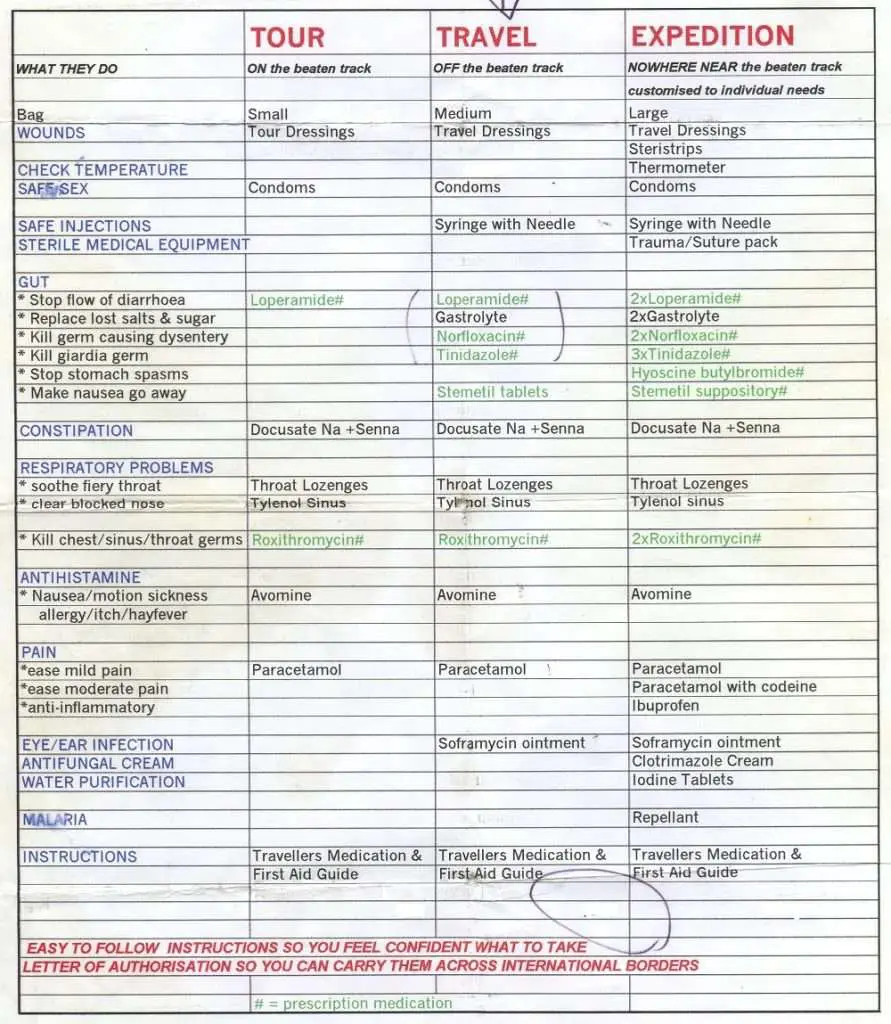 TOUR TRAVEL EXPEDITION
WHAT THEY DO ON the beaten track OFF the beaten track NOWHERE NEAR the beaten track
customised to individual needs
Bag Small Medium Large
WOUNDS Tour Dressings Travel Dressings Travel Dressings
Steristrips
CHECK TEMPERATURE Thermometer
SAFE SEX Condoms Condoms Condoms
SAFE INJECTIONS Syringe with Needle Syringe with Needle
STERILE MEDICAL EQUIPMENT Trauma/Suture pack
GUT
* Stop flow of diarrhoea Loperamide# Loperamide# 2xLoperamide#
* Replace lost salts & sugar Gastrolyte 2xGastrolyte
* Kill germ causing dysentery Norfloxacin# 2xNorfloxacin#
* Kill giardia germ Tinidazole# 3xTinidazole#
* Stop stomach spasms Hyoscine butylbromide#
* Make nausea go away Stemetil tablets Stemetil suppository#
CONSTIPATION Docusate Na +Senna Docusate Na +Senna Docusate Na +Senna
RESPIRATORY PROBLEMS
* soothe fiery throat Throat Lozenges Throat Lozenges Throat Lozenges
* clear blocked nose Tylenol Sinus Tylenol Sinus Tylenol sinus
* Kill chest/sinus/throat germs Roxithromycin# Roxithromycin# 2xRoxithromycin#
ANTIHISTAMINE
* Nausea/motion sickness Avomine Avomine Avomine
allergy/itch/hayfever
PAIN
*ease mild pain Paracetamol Paracetamol Paracetamol
*ease moderate pain Paracetamol with codeine
*anti-inflammatory Ibuprofen
EYE/EAR INFECTION Soframycin ointment Soframycin ointment
ANTIFUNGAL CREAM Clotrimazole Cream
WATER PURIFICATION Iodine Tablets
MALARIA Repellant
INSTRUCTIONS Travellers Medication & Travellers Medication & Travellers Medication &
First Aid Guide First Aid Guide First Aid Guide
EASY TO FOLLOW INSTRUCTIONS SO YOU FEEL CONFIDENT WHAT TO TAKE
LETTER OF AUTHORISATION SO YOU CAN CARRY THEM ACROSS INTERNATIONAL BORDERS
# = prescription medication